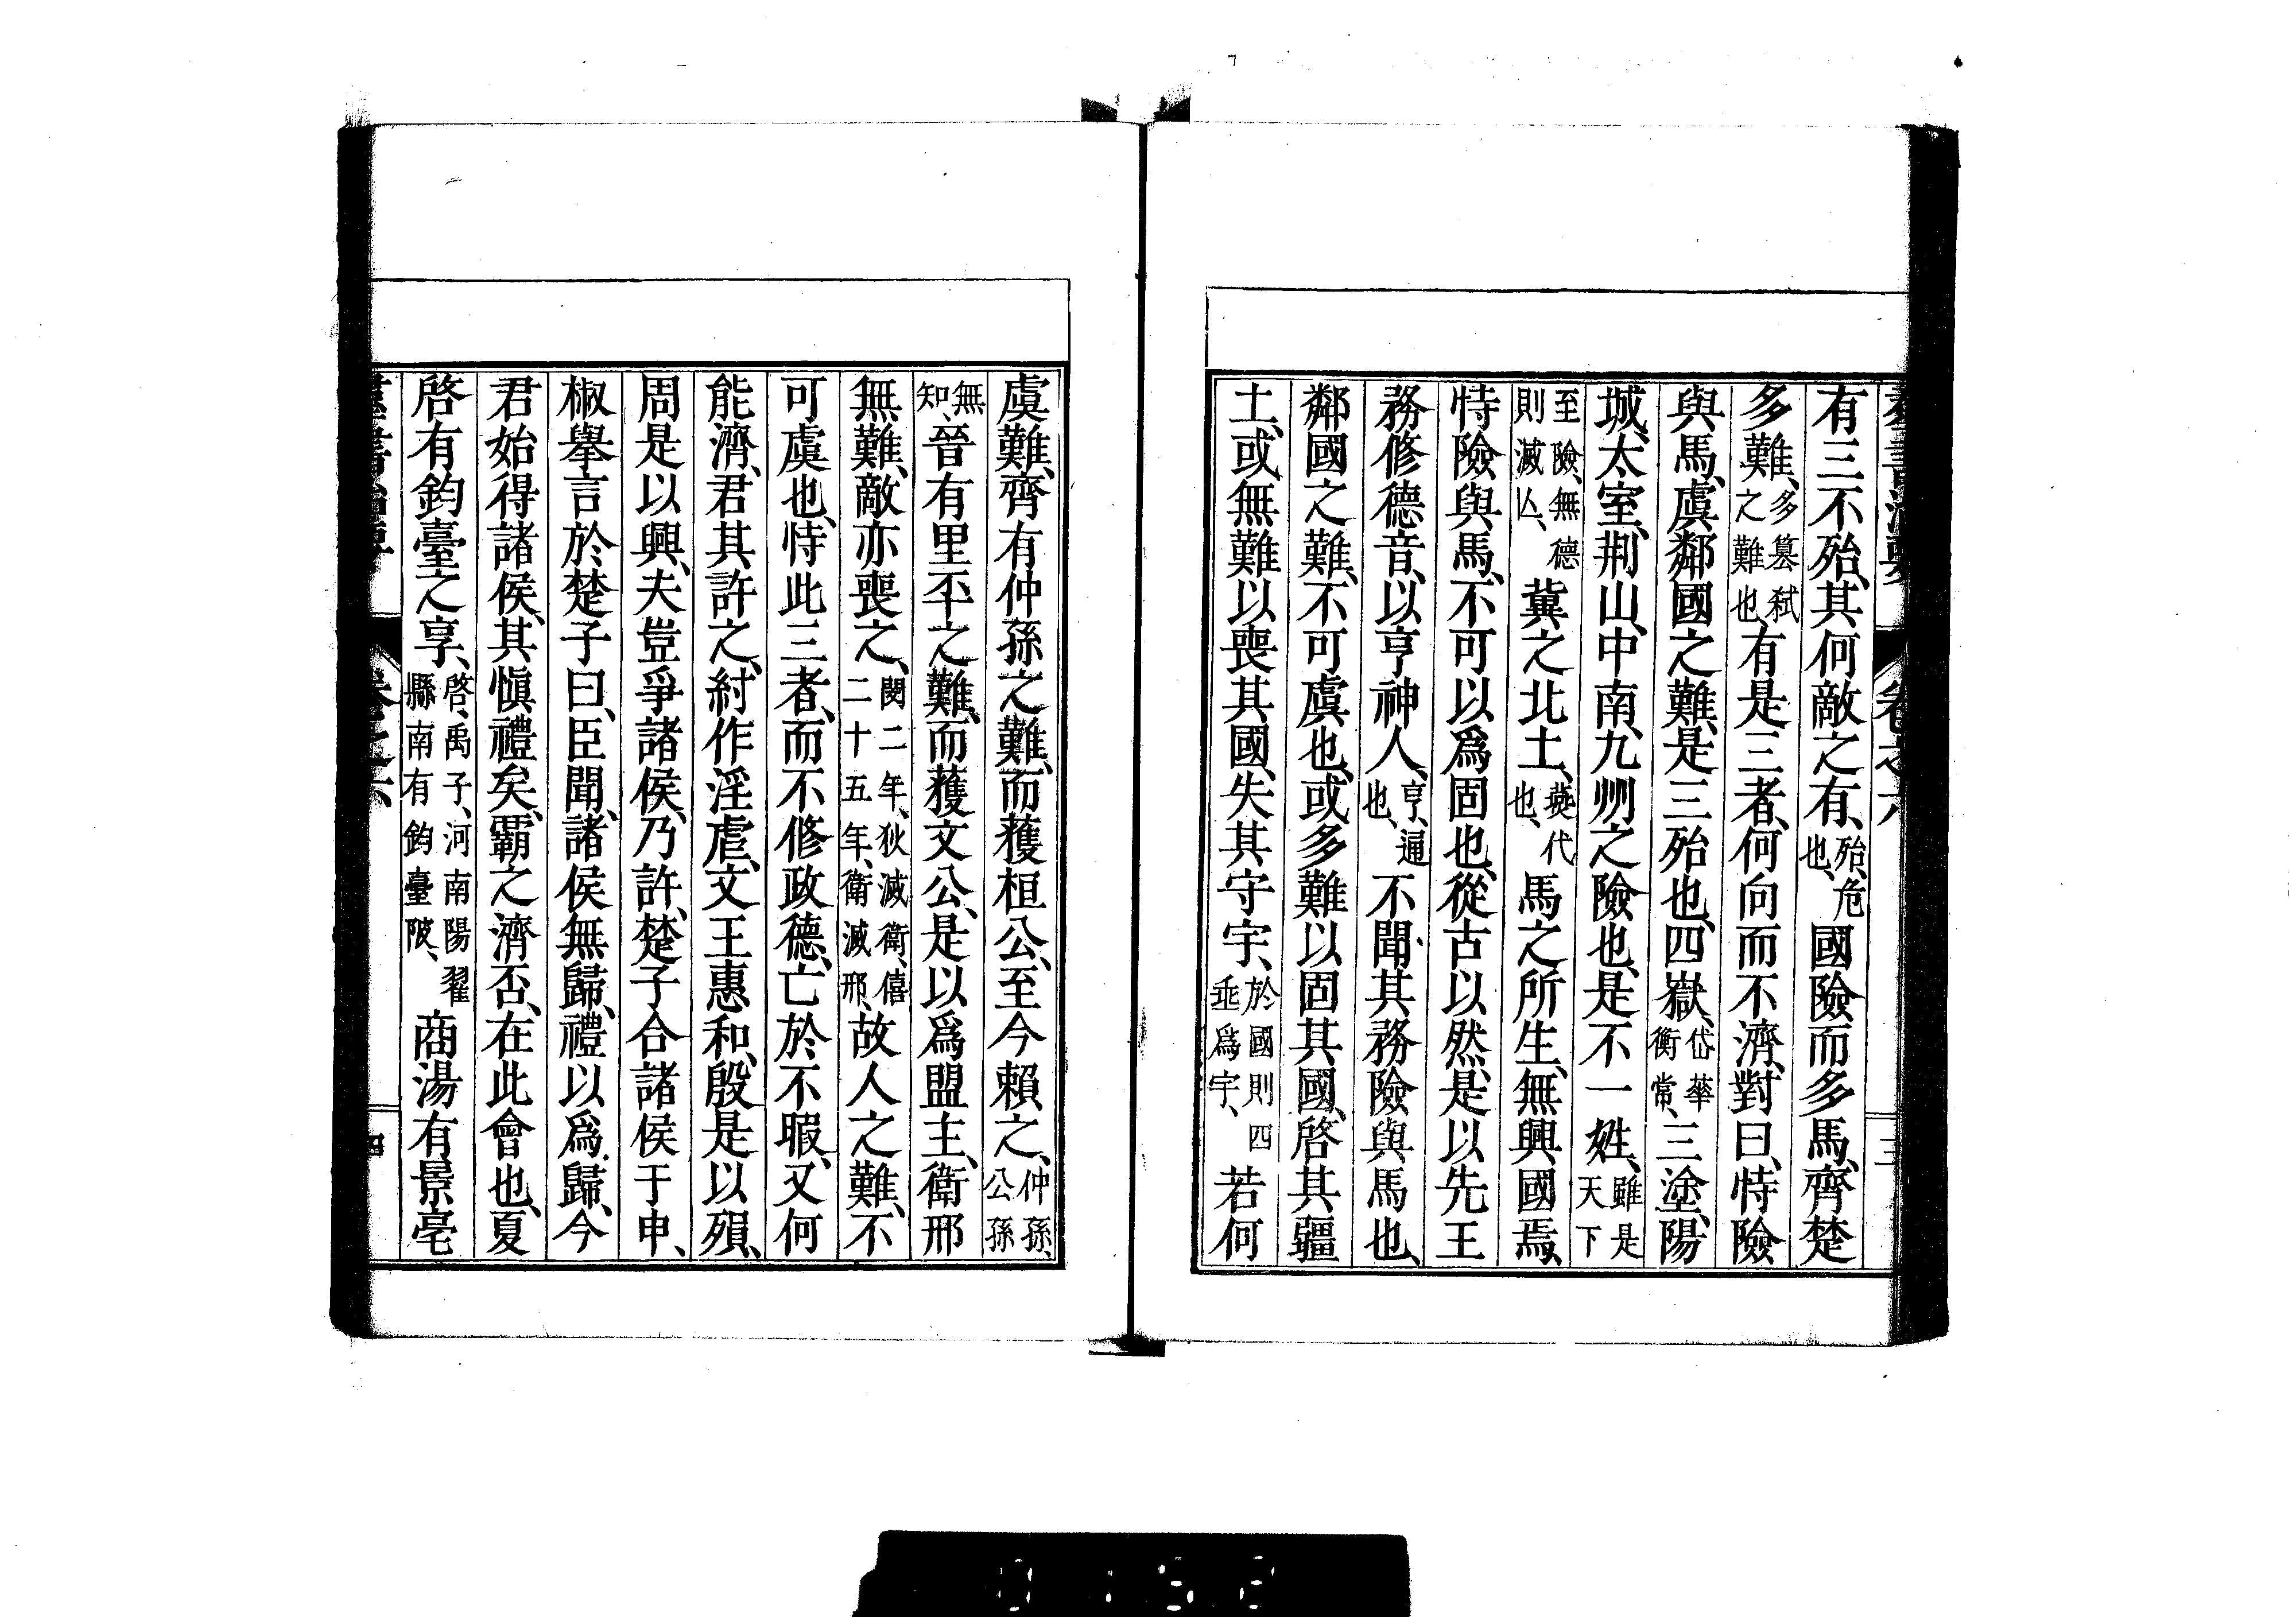 羣書治要 卷之六 三
有三不殆、其何敵之有、殆、危也、國險而多馬、齊楚
多難、多簒弑之難也、有是三者、何向而不濟、對曰、恃險
與馬、虞鄰國之難、是三殆也、四嶽、岱華衡常、三塗、陽
城、太室、荆山、中南、九州之險也、是不一姓、雖是天下
至險、無德則滅亾、冀之北土、燕代也、馬之所生、無興國焉、
恃險與馬、不可以爲固也、從古以然、是以先王
務修德音、以亨神人、亨、通也、不聞其務險與馬也、
鄰國之難、不可虞也、或多難以固其國、啓其疆
土、或無難以喪其國、失其守宇、於國則四垂爲宇、若何
虞難、齊有仲孫之難、而獲桓公、至今賴之、仲孫、公孫
無知、晉有里㔻之難、而獲文公、是以爲盟主、衛邢
無難、敵亦喪之、閔二年、狄滅衛、僖二十五年、衛滅邢、故人之難、不
可虞也、恃此三者、而不修政德、亡於不暇、又何
能濟、君其許之、紂作淫虐、文王惠和、殷是以殞、
周是以興、夫豈爭諸侯、乃許、楚子合諸侯于申、
椒擧言於楚子曰、臣聞、諸侯無歸、禮以爲歸、今
君始得諸侯、其愼禮矣、霸之濟否、在此會也、夏
啓有鈞臺之享、啓、禹子、河南陽翟縣南有鈞臺陂、商湯有景亳
羣書治要 卷之六 四